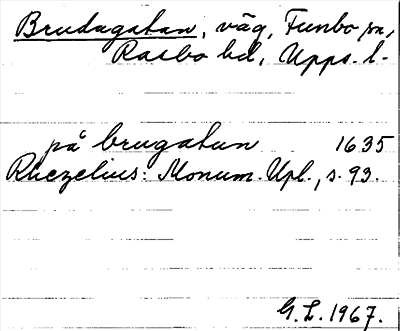 Brudagatan, väg, Funbo sn,
Rasbo hd, Upps. l.
på brugatun 1635
Rhezelius: Monum. Upl., s. 93.
G. L. 1967.